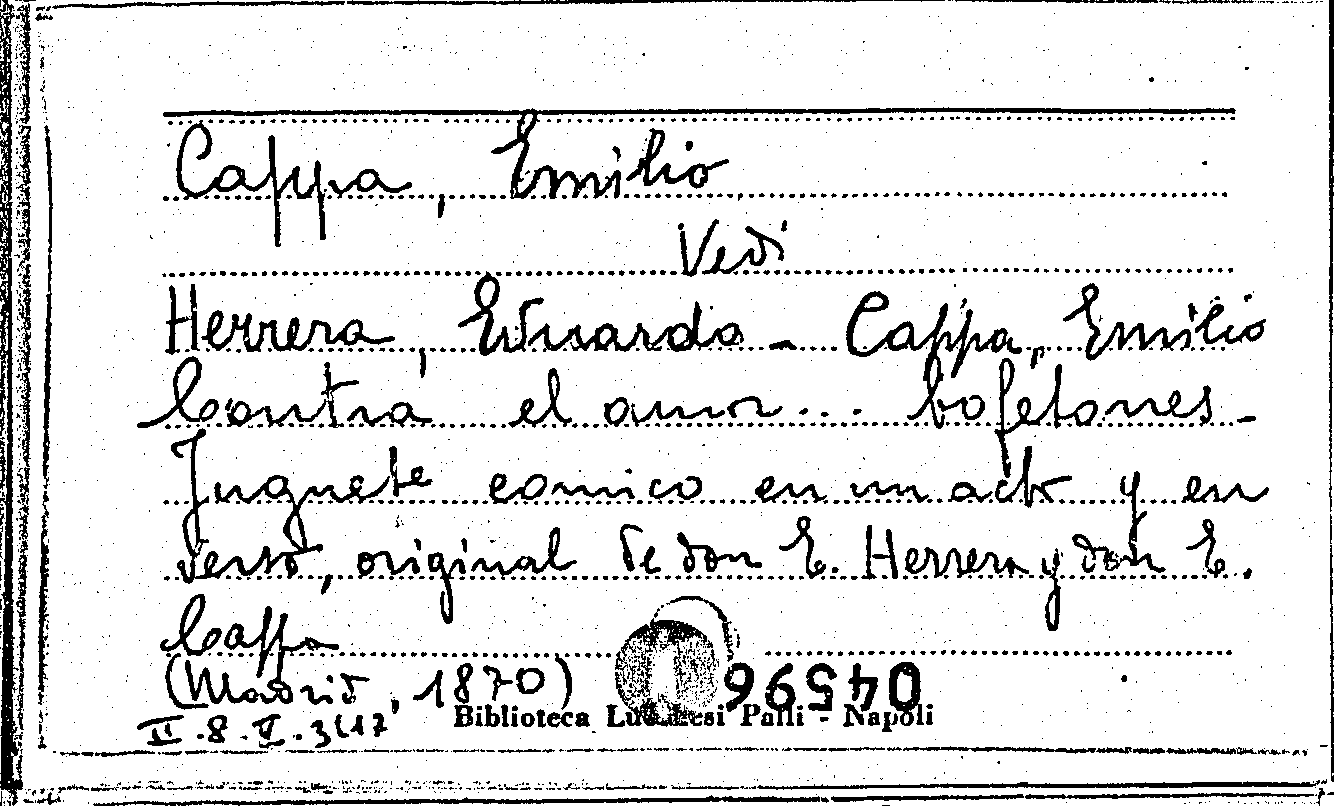 Cappa, Emilio
Vedi
Herrera, Eduardo - Cappa, Emilio
Contra el amor... bofetones -
Juguete comico en un acto y en
verso, original de don E. Herrera y don E.
Cappa
(Madrid, 1870)
04596
II.8.V.3(17
Biblioteca Lucchesi Palli - Napoli